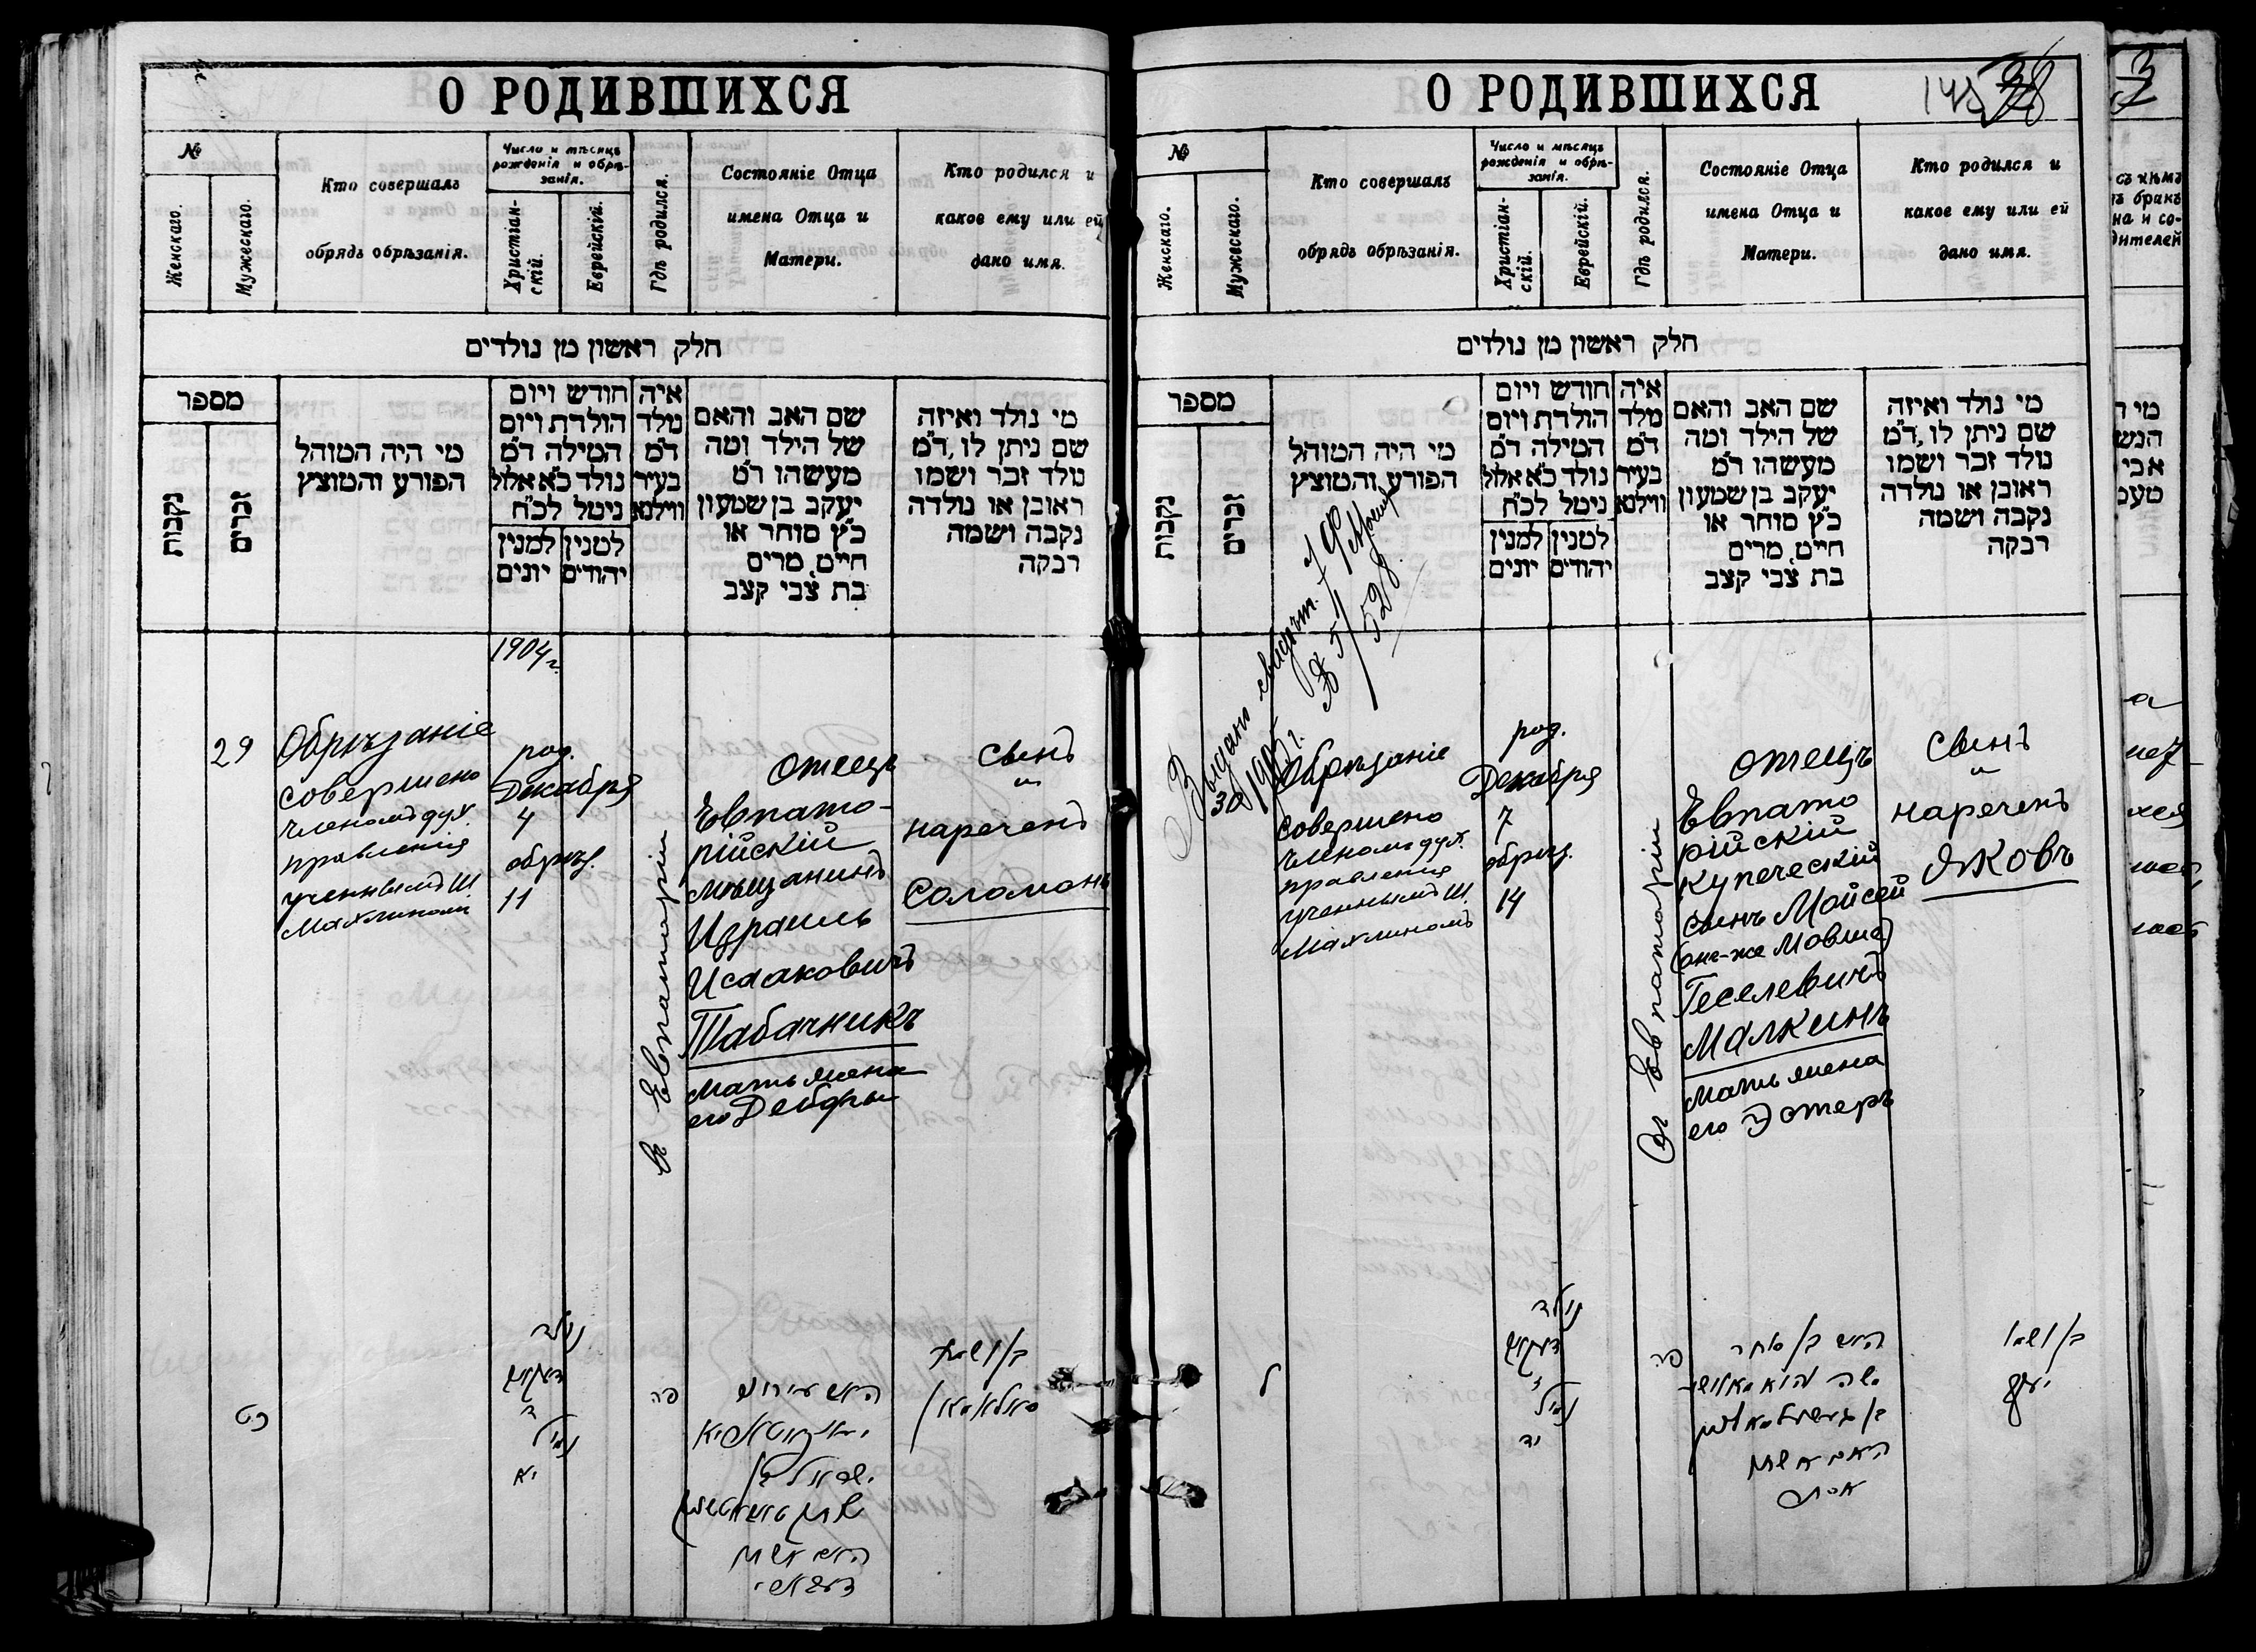 О РОДИВШИХСЯ
№
Женскаго.
Мужескаго.
Кто совершалъ
обрядъ обрѣзанія.
Число и мѣсяцъ
рожденія и обрѣ-
занія.
Христіан-
скій.
Еврейскій.
Гдѣ родился.
Состояніе Отца
имена Отца и
Матери.
Кто родился и
какое ему или ей
дано имя.
חלק ראשון מן נולדים
מספר
נקבות
זכרים
מי היה המוהל
הפורע והמוצץ
חודש ויום
הולדת ויום
המילה ד"מ
נולד כ"א אלול
ניטל לכ"ח
למנין
יונים
למנין
יהודים
איה
נולד
ד"מ
בעיר
ווילנא
שם האב והאם
של הילד ומה
מעשהו ד"מ
יעקב בן שמעון
כ"ץ סוחר או
חייט, מרים
בת צבי קצב
מי נולד ואיזה
שם ניתן לו, ד"מ
נולד זכר ושמו
ראובן או נולדה
נקבה ושמה
רבקה
1904 г.
29
Обрѣзаніе
совершено
членомъ дух.
правленія
ученымъ Ш.
Махлиномъ
род.
Декабря
4
обрѣз.
11
въ Евпаторіи
отецъ
Евпато-
рійскій
мѣщанинъ
Израиль
Исааковичъ
Табачникъ
мать жена
его
сынъ
и
нареченъ
Соломонъ
כט
נולד
ד
נמול
יא
פה
ישראל בן
האם אשתו
בן ושמו
О РОДИВШИХСЯ
№
Женскаго.
Мужескаго.
Кто совершалъ
обрядъ обрѣзанія.
Число и мѣсяцъ
рожденія и обрѣ-
занія.
Христіан-
скій.
Еврейскій.
Гдѣ родился.
Состояніе Отца
имена Отца и
Матери.
Кто родился и
какое ему или ей
дано имя.
חלק ראשון מן נולדים
מספר
נקבות
זכרים
מי היה המוהל
הפורע והמוצץ
חודש ויום
הולדת ויום
המילה ד"מ
נולד כ"א אלול
ניטל לכ"ח
למנין
יונים
למנין
יהודים
איה
נולד
ד"מ
בעיר
ווילנא
שם האב והאם
של הילד ומה
מעשהו ד"מ
יעקב בן שמעון
כ"ץ סוחר או
חייט, מרים
בת צבי קצב
מי נולד ואיזה
שם ניתן לו, ד"מ
נולד זכר ושמו
ראובן או נולדה
נקבה ושמה
רבקה
Обрѣзаніе
совершено
членомъ дух.
правленія
ученымъ Ш.
Махлиномъ
род.
Декабря
7
обрѣз.
14
въ Евпаторіи
отецъ
Евпато
рійскій
купеческій
сынъ Мойсей
(онъ-же Мовша)
Геселевичъ
Малкинъ
мать жена
его Эстеръ
сынъ
и
нареченъ
Яковъ
ל
נולד
ז
נמול
יד
פה
האם אשתו
אסתר
בן ושמו
יעקב